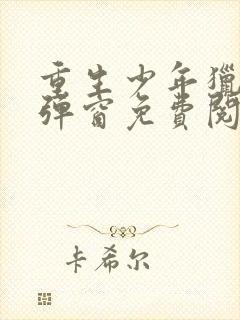 重生少年獵
彈窗免費閱
卡希尔